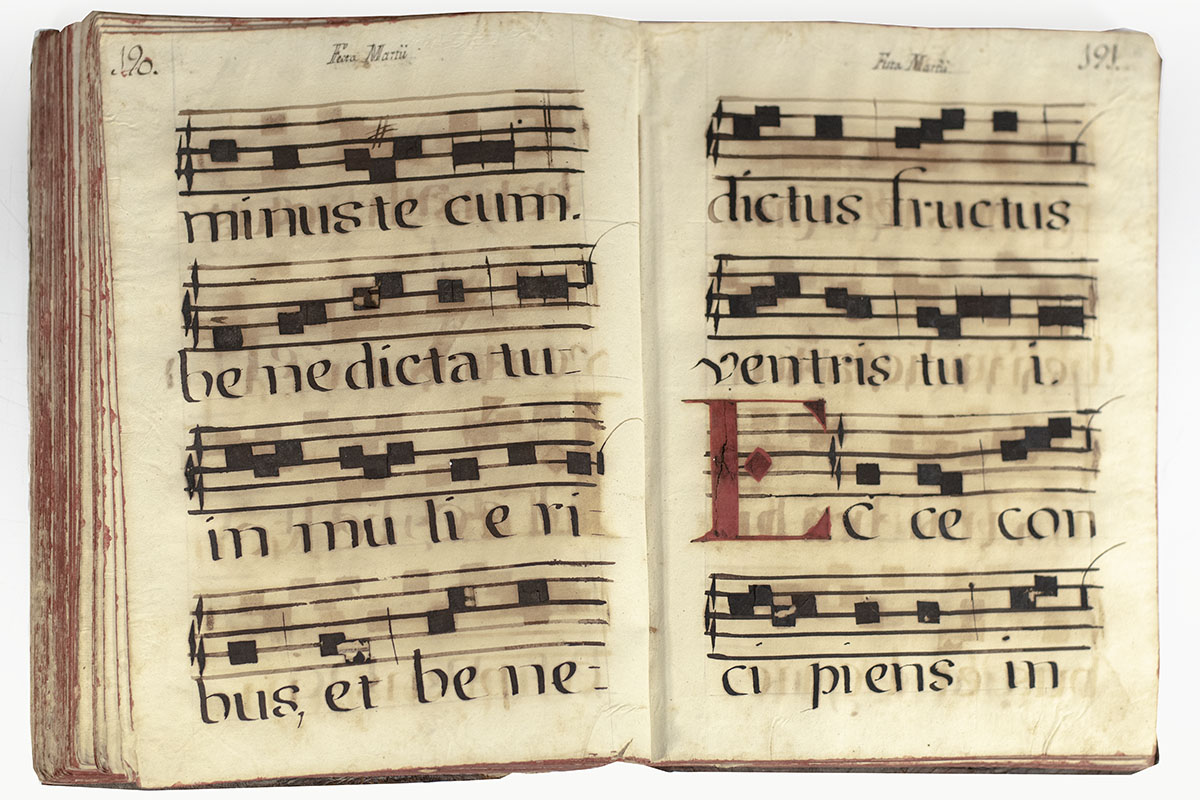 190.
Festa Martii
minus te cum.
be ne dicta tu-
in mu li e ri-
bus, et be ne-
Festa Martii
191.
dictus fructus
ventris tu i.
Ec ce con
ci piens in